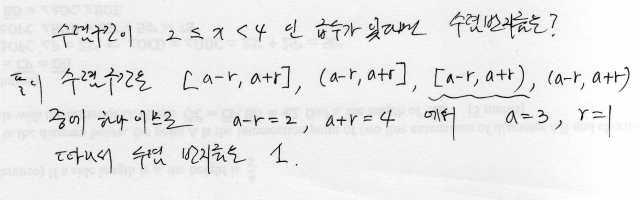 수렴구간이 2 ≤ x < 4 인 급수가 있다면 수렴반지름은?
풀이 수렴구간은 [a-r, a+r], (a-r, a+r], [a-r, a+r), (a-r, a+r)
중에 하나 이므로 a-r=2, a+r=4 에서 a=3, r=1
따라서 수렴 반지름은 1.